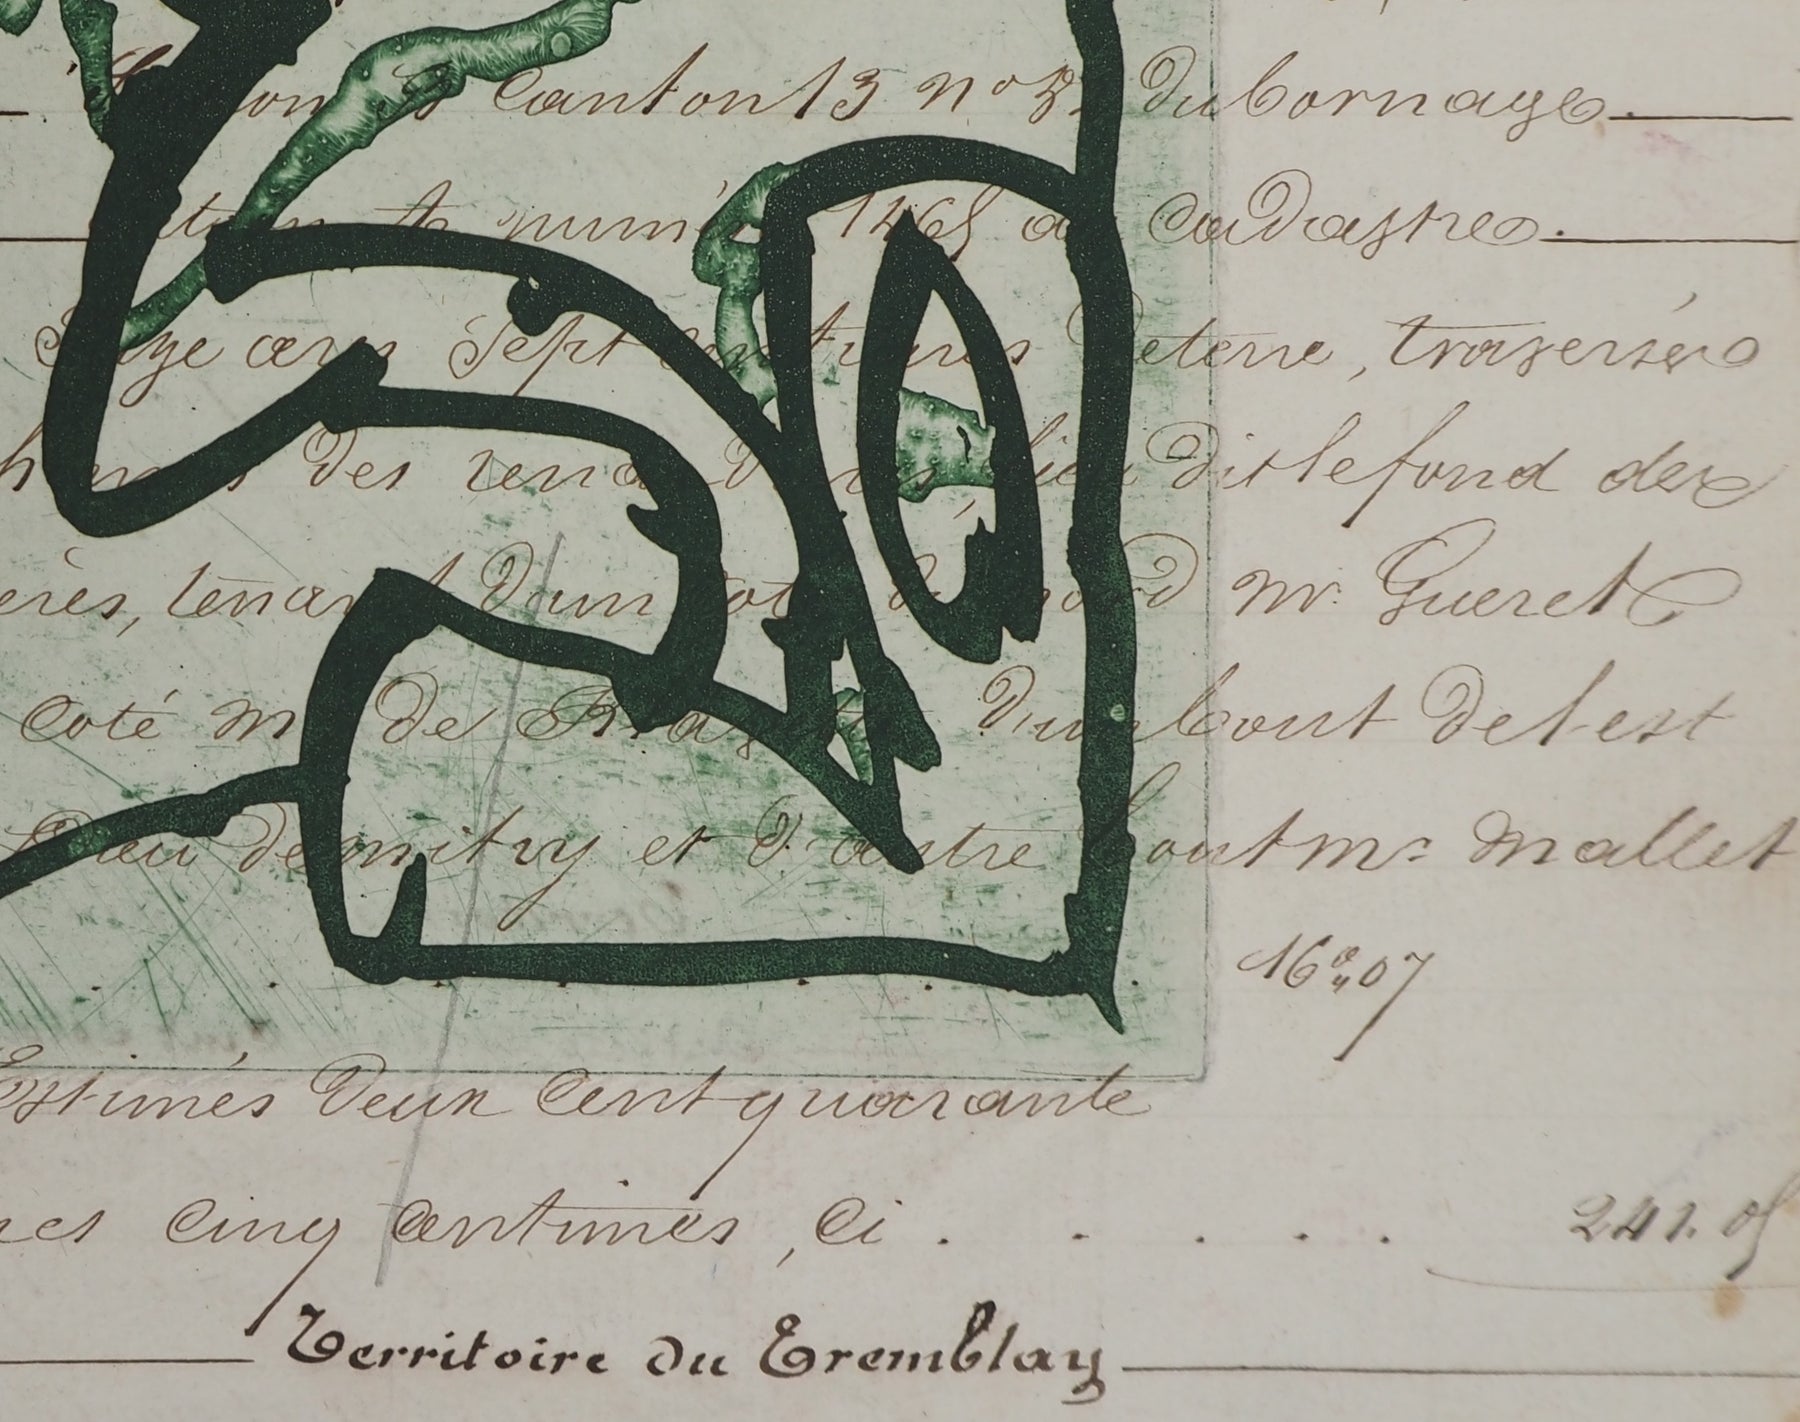 Canton 13 no 8 du bornage
numéro 1465 du cadastre.
Seize ares Sept centiares de terre, traversée
des lieu dit le fond des
ères, tenant d'un coté du nord Mr. Gueret
coté M de d'un bout de l'est
de mitry et d'autre bout Mr Mallet
16a,,07
Estimés Deux cent quarante
cinq centimes, ci . . . . . 241.05
Territoire du Tremblay